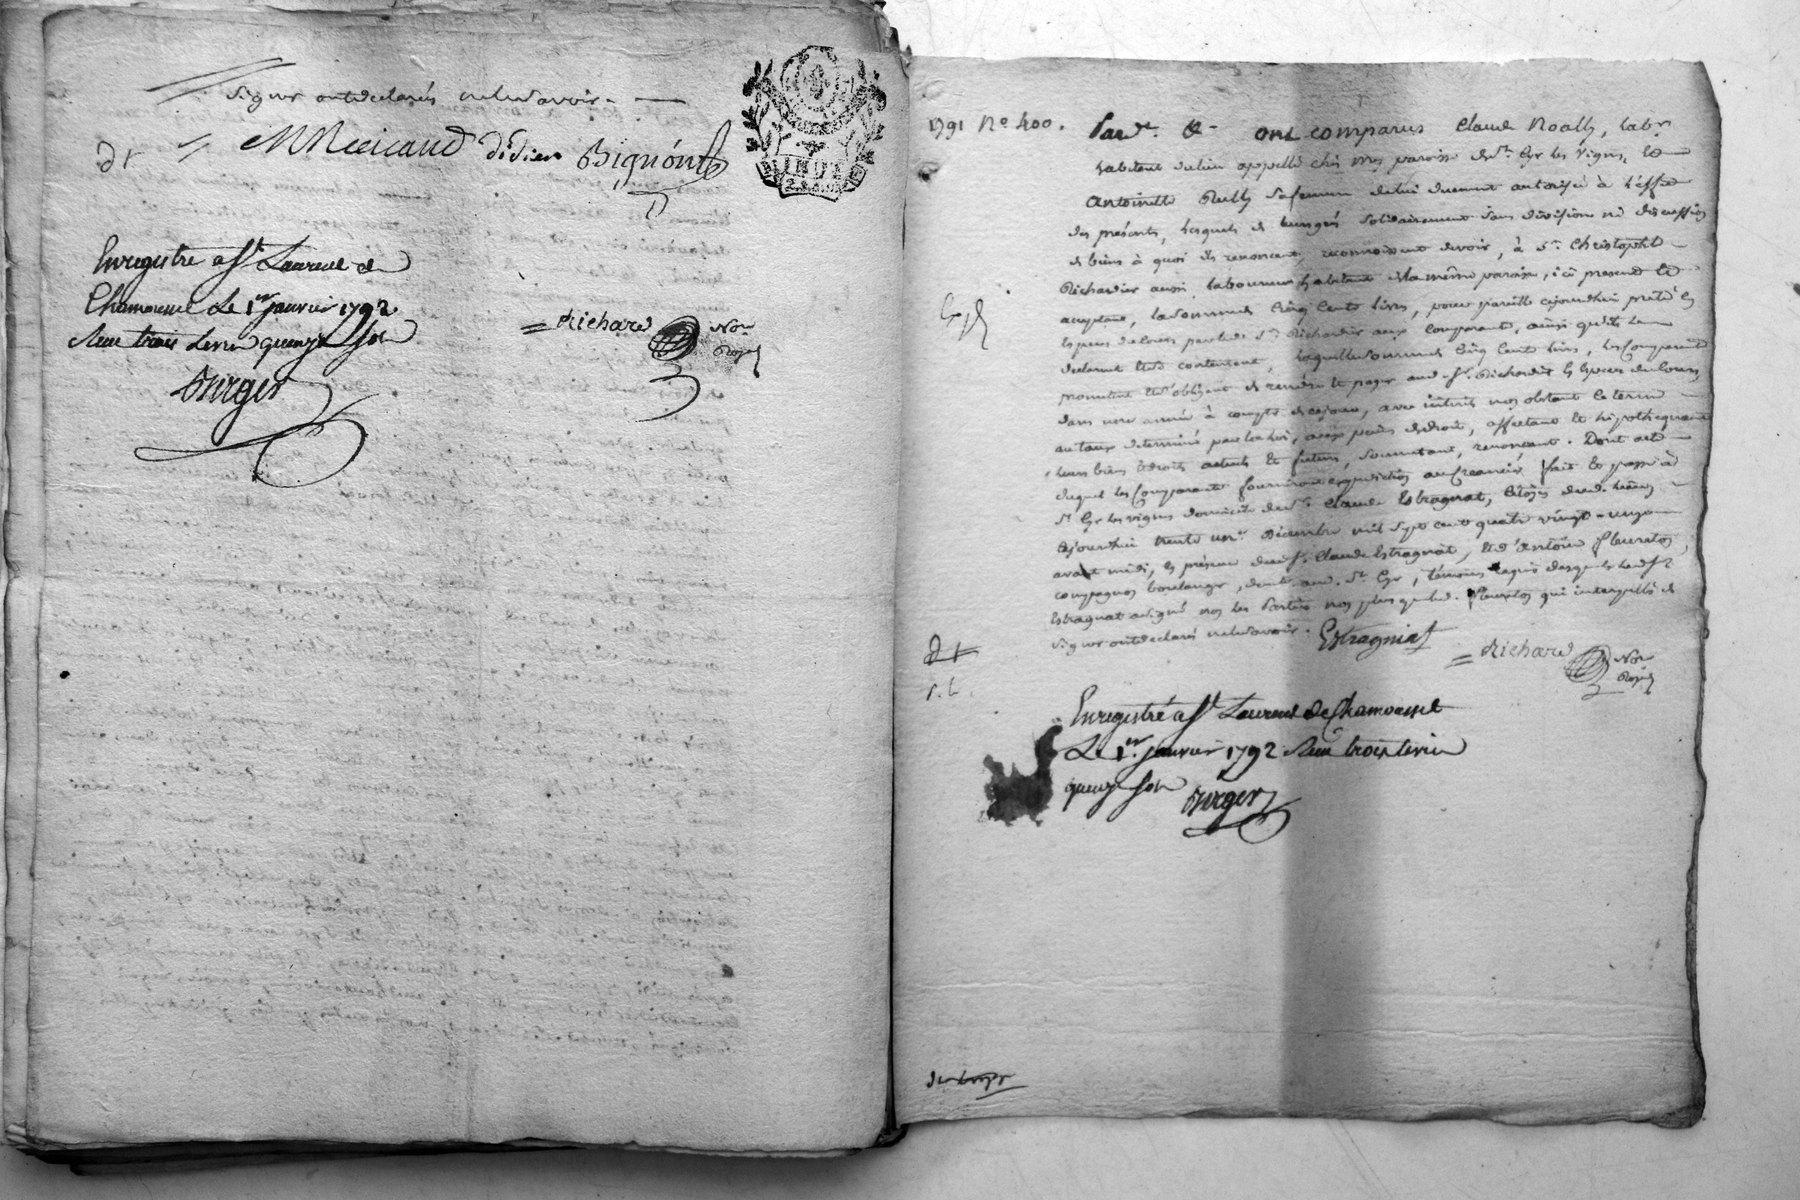 signer ont declarés ne le savoir. —
dt MMericaud didier Bignónt
Enregistré a St Laurent de
Chamousset Le 1er janvier 1792
Recu trois Livres quinze sols
Burger
= Richard Nore
Royal
1791 No 400. Pardt &a ont comparus Claude Noally, labr
habitant du lieu appellé chés mos paroisse de St Cyr les Vignes, &
Antoinette Rully sa femme de lui duement autorisée à l'effet
des présents, lesquels de leurs grés solidairement sans division ni discussion
de biens à quoi ils renoncent, reconnoissent devoir, à Sr Christophle
Richardier aussi laboureur habitant de la même paroisse, ici present &
acceptant, la somme de Cinq Cents livres, pour pareille cejourdhui prété en
Exp
especes de cours par led. Sr Richardier aux Comparants, ainsi qu'ils le
declarent & s'en contentent, laquelle somme de Cinq Cents livres, les Comparants
promettent & s'obligent de rendre & payer aud. Sr Richardier en especes de cours
dans une année à compter de ce jour, avec intérêts non obstant le terme
au taux determiné par la loi, aux peines de droit, affectant & hypothequant
leurs biens & droits actuels & futurs, soumettant, renonçant. Dont acte
duquel les Comparants fourniront expedition au Creancier fait & passé à
St Cyr les vignes domicile du Sr Claude Estragnat, citoyen dud. lieu
cejourdhui trente un Décembre mil sept cent quatre vingt-onze
avant midi, en présence dud. Sr Claude Estragnat, & d'Antoine fleuraton,
compagnon boulanger, demt aud. St Cyr, témoins requis desquels led. Sr
Estragnat a signé non les Parties non plus que led. fleuraton qui interpellés de
signer ont declarés ne le savoir. Estragniat
dt
= Richard Nore
Royal
Enregistré a St Laurent de Chamousset
Le 1er janvier 1792 Recu trois livres
quinze sols Burger